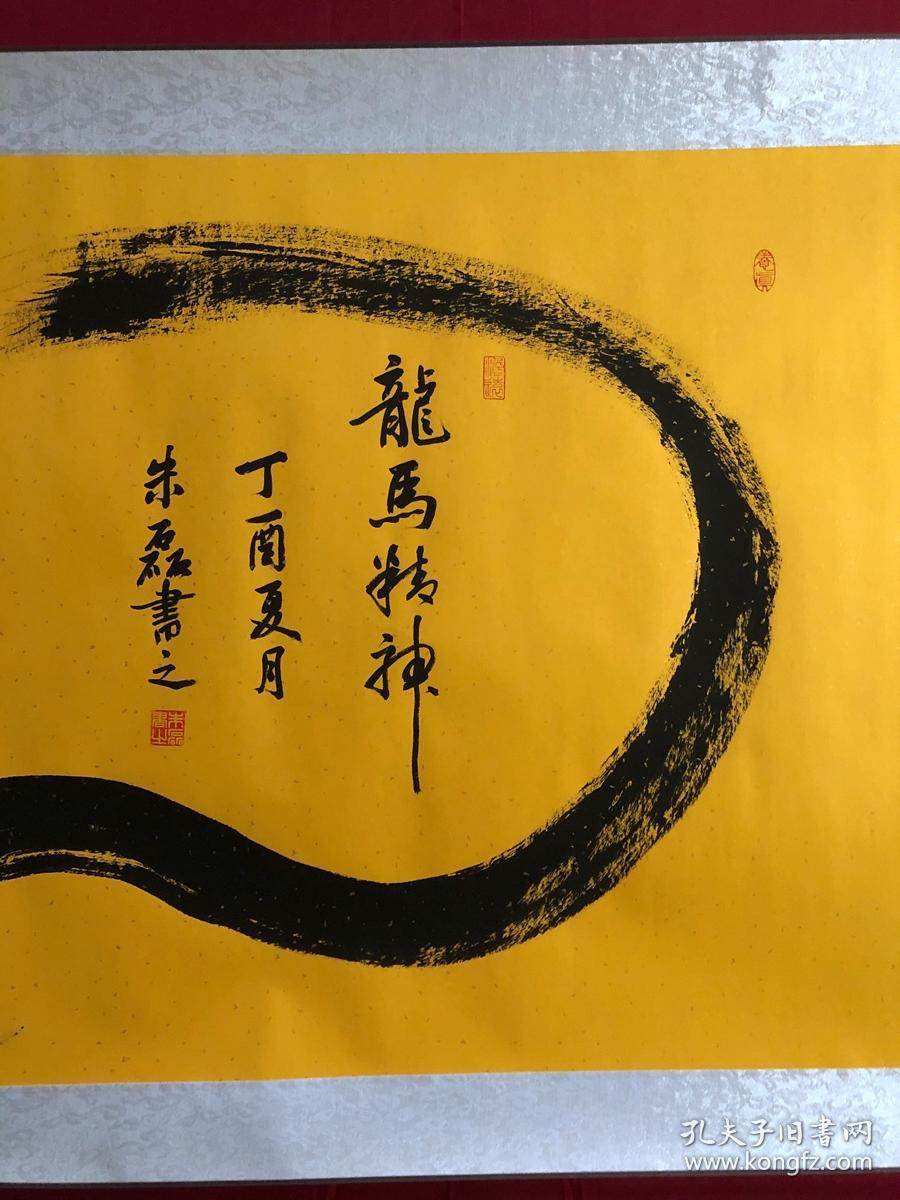 龍馬精神
丁酉夏月
朱磊書之
孔夫子旧書网
www.kongfz.com